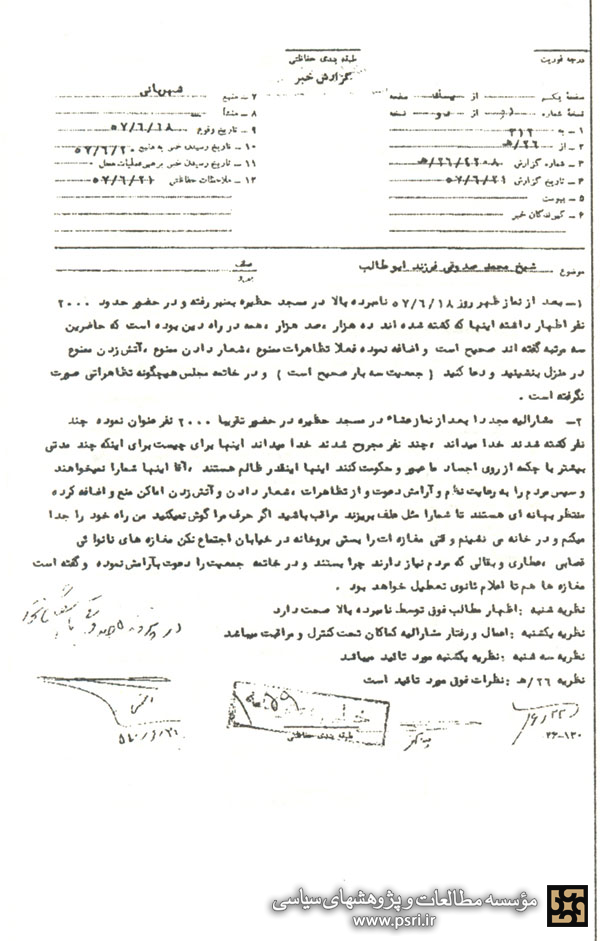 درجه فوریت
طبقه بندی حفاظتی
گزارش خبر
صفحه یکم از یک صفحه
نسخه شماره از دو نسخه
۱ـ به ۳۱۲
۲ـ از ۲۶/هـ
۳ـ شماره گزارش ۲۲۰۸/۲۶هـ
۴ـ تاریخ گزارش ۵۷/۶/۲۱
۵ـ پیوست
۶ـ گیرندگان خبر
۷ـ منبع شهربانی
۸ـ منشأ
۹ـ تاریخ وقوع ۵۷/۶/۱۸
۱۰ـ تاریخ رسیدن خبر به منبع ۵۷/۶/۲۰
۱۱ـ تاریخ رسیدن خبر برهبر عملیات محل
۱۲ـ ملاحظات حفاظتی ۵۷/۶/۲۱
موضوع شیخ محمد صدوقی فرزند ابوطالب
۱ـ بعد از نماز ظهر روز ۵۷/۶/۱۸ نامبرده بالا در مسجد حظیره بمنبر رفته و در حضور حدود ۲۰۰۰
نفر اظهار داشته اینها که کشته شده اند ده هزار ،صد هزار ،همه در راه دین بوده است که حاضرین
سه مرتبه گفته اند صحیح است و اضافه نموده فعلا تظاهرات ممنوع ،شعار دادن ممنوع ،آتش زدن ممنوع
در منزل بنشینید و دعا کنید ( جمعیت سه بار صحیح است ) و در خاتمه مجلس هیچگونه تظاهراتی صورت
نگرفته است .
۲ـ مشارالیه مجددا بعد از نماز عشاء در مسجد حظیره در حضور تقریبا ۲۰۰۰ نفر عنوان نموده چند
نفر کشته شدند خدا میداند ،چند نفر مجروح شدند خدا میداند اینها برای چیست برای اینکه چند مدتی
بیشتر با چکمه از روی اجساد ما عبور و حکومت کنند اینها اینقدر ظالم هستند ،آقا اینها شما را نمیخواهند
و سپس مردم را به رعایت نظم و آرامش دعوت و از تظاهرات ،شعار دادن و آتش زدن اماکن منع و اضافه کرده
منتظر بهانه ای هستند تا شما را مثل علف بریزند مراقب باشید اگر حرف مرا گوش نمیکنید من راه خود را جدا
میکنم و در خانه می نشینم وقتی مغازه ات را بستی برو خانه در خیابان اجتماع نکن مغازه های نانوائی
قصابی ،عطاری و بقالی که مردم نیاز دارند چرا بستند و در خاتمه جمعیت را دعوت بآرامش نموده و گفته است
مغازه ها هم تا اعلام ثانوی تعطیل خواهد بود .
نظریه شنبه :اظهار مطالب فوق توسط نامبرده بالا صحت دارد
نظریه یکشنبه :اعمال و رفتار مشارالیه کماکان تحت کنترل و مراقبت میباشد
نظریه سه شنبه :نظریه یکشنبه مورد تائید میباشد
نظریه ۲۶/هـ :نظرات فوق مورد تائید است
طبقه بندی حفاظتی
۲۶-۱۳۰
مؤسسه مطالعات و پژوهشهای سیاسی
www.psri.ir